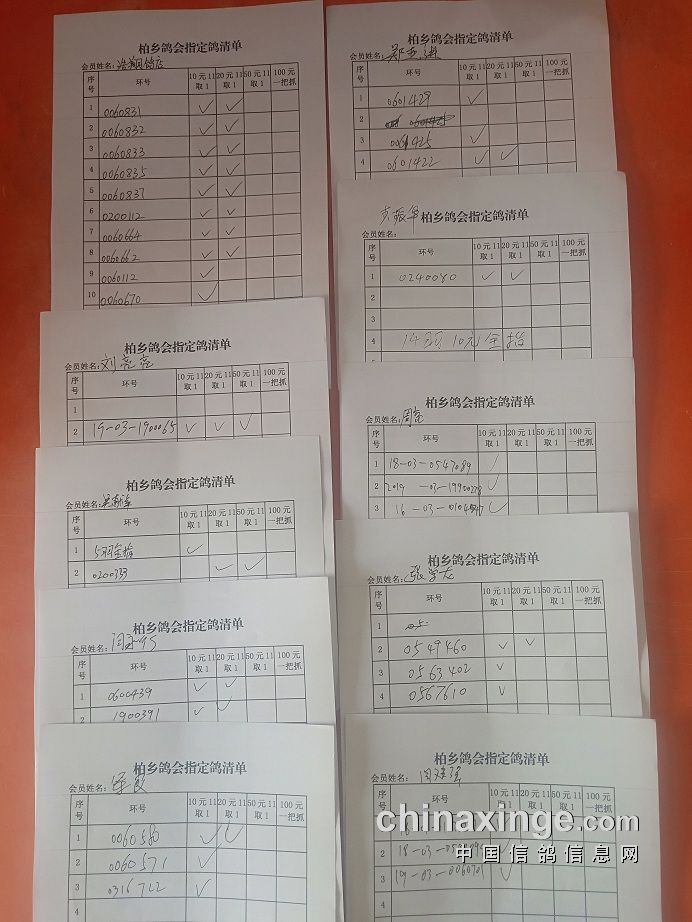 柏乡鸽会指定鸽清单
会员姓名：浩翔鸽店
序号 环号 10元11取1 20元11取1 50元11取1 100元一把抓
1 0060831 ✓ ✓
2 0060832 ✓ ✓
3 0060833 ✓ ✓
4 0060835 ✓ ✓
5 0060837 ✓ ✓
6 0200112 ✓ ✓
7 0060664 ✓ ✓
8 0060662 ✓ ✓
9 0060112 ✓
10 0060670 ✓
柏乡鸽会指定鸽清单
会员姓名：刘亮亮
序号 环号 10元11取1 20元11取1 50元11取1 100元一把抓
1
2 19-03-1900065 ✓ ✓ ✓
柏乡鸽会指定鸽清单
会员姓名：
序号 环号 10元11取1 20元11取1 50元11取1 100元一把抓
1 5羽全指 ✓
2 0200333 ✓ ✓
柏乡鸽会指定鸽清单
会员姓名：
序号 环号 10元11取1 20元11取1 50元11取1 100元一把抓
1 0600439 ✓ ✓
2 1900391 ✓ ✓
柏乡鸽会指定鸽清单
会员姓名：
序号 环号 10元11取1 20元11取1 50元11取1 100元一把抓
1 0060560 ✓ ✓
2 0060571 ✓
3 0316722 ✓
4
柏乡鸽会指定鸽清单
会员姓名：郑亚进
序号 环号 10元11取1 20元11取1 50元11取1 100元一把抓
1 0601429 ✓
2
3 0601425 ✓
4 0601422 ✓ ✓
柏乡鸽会指定鸽清单
会员姓名：
序号 环号 10元11取1 20元11取1 50元11取1 100元一把抓
1 0240080 ✓ ✓
2
3
4 14羽 10元全指
柏乡鸽会指定鸽清单
会员姓名：
序号 环号 10元11取1 20元11取1 50元11取1 100元一把抓
1 18-03-0547089 ✓
2 2019-03-19900278 ✓
3 16-03- ✓
柏乡鸽会指定鸽清单
会员姓名：张学龙
序号 环号 10元11取1 20元11取1 50元11取1 100元一把抓
1
2 0549460 ✓ ✓
3 0563402 ✓
4 0567610 ✓
柏乡鸽会指定鸽清单
会员姓名：
序号 环号 10元11取1 20元11取1 50元11取1 100元一把抓
1 18
2 18-03- ✓
3 19-03-0060701 ✓
4
chinaxinge.com
中国信鸽信息网